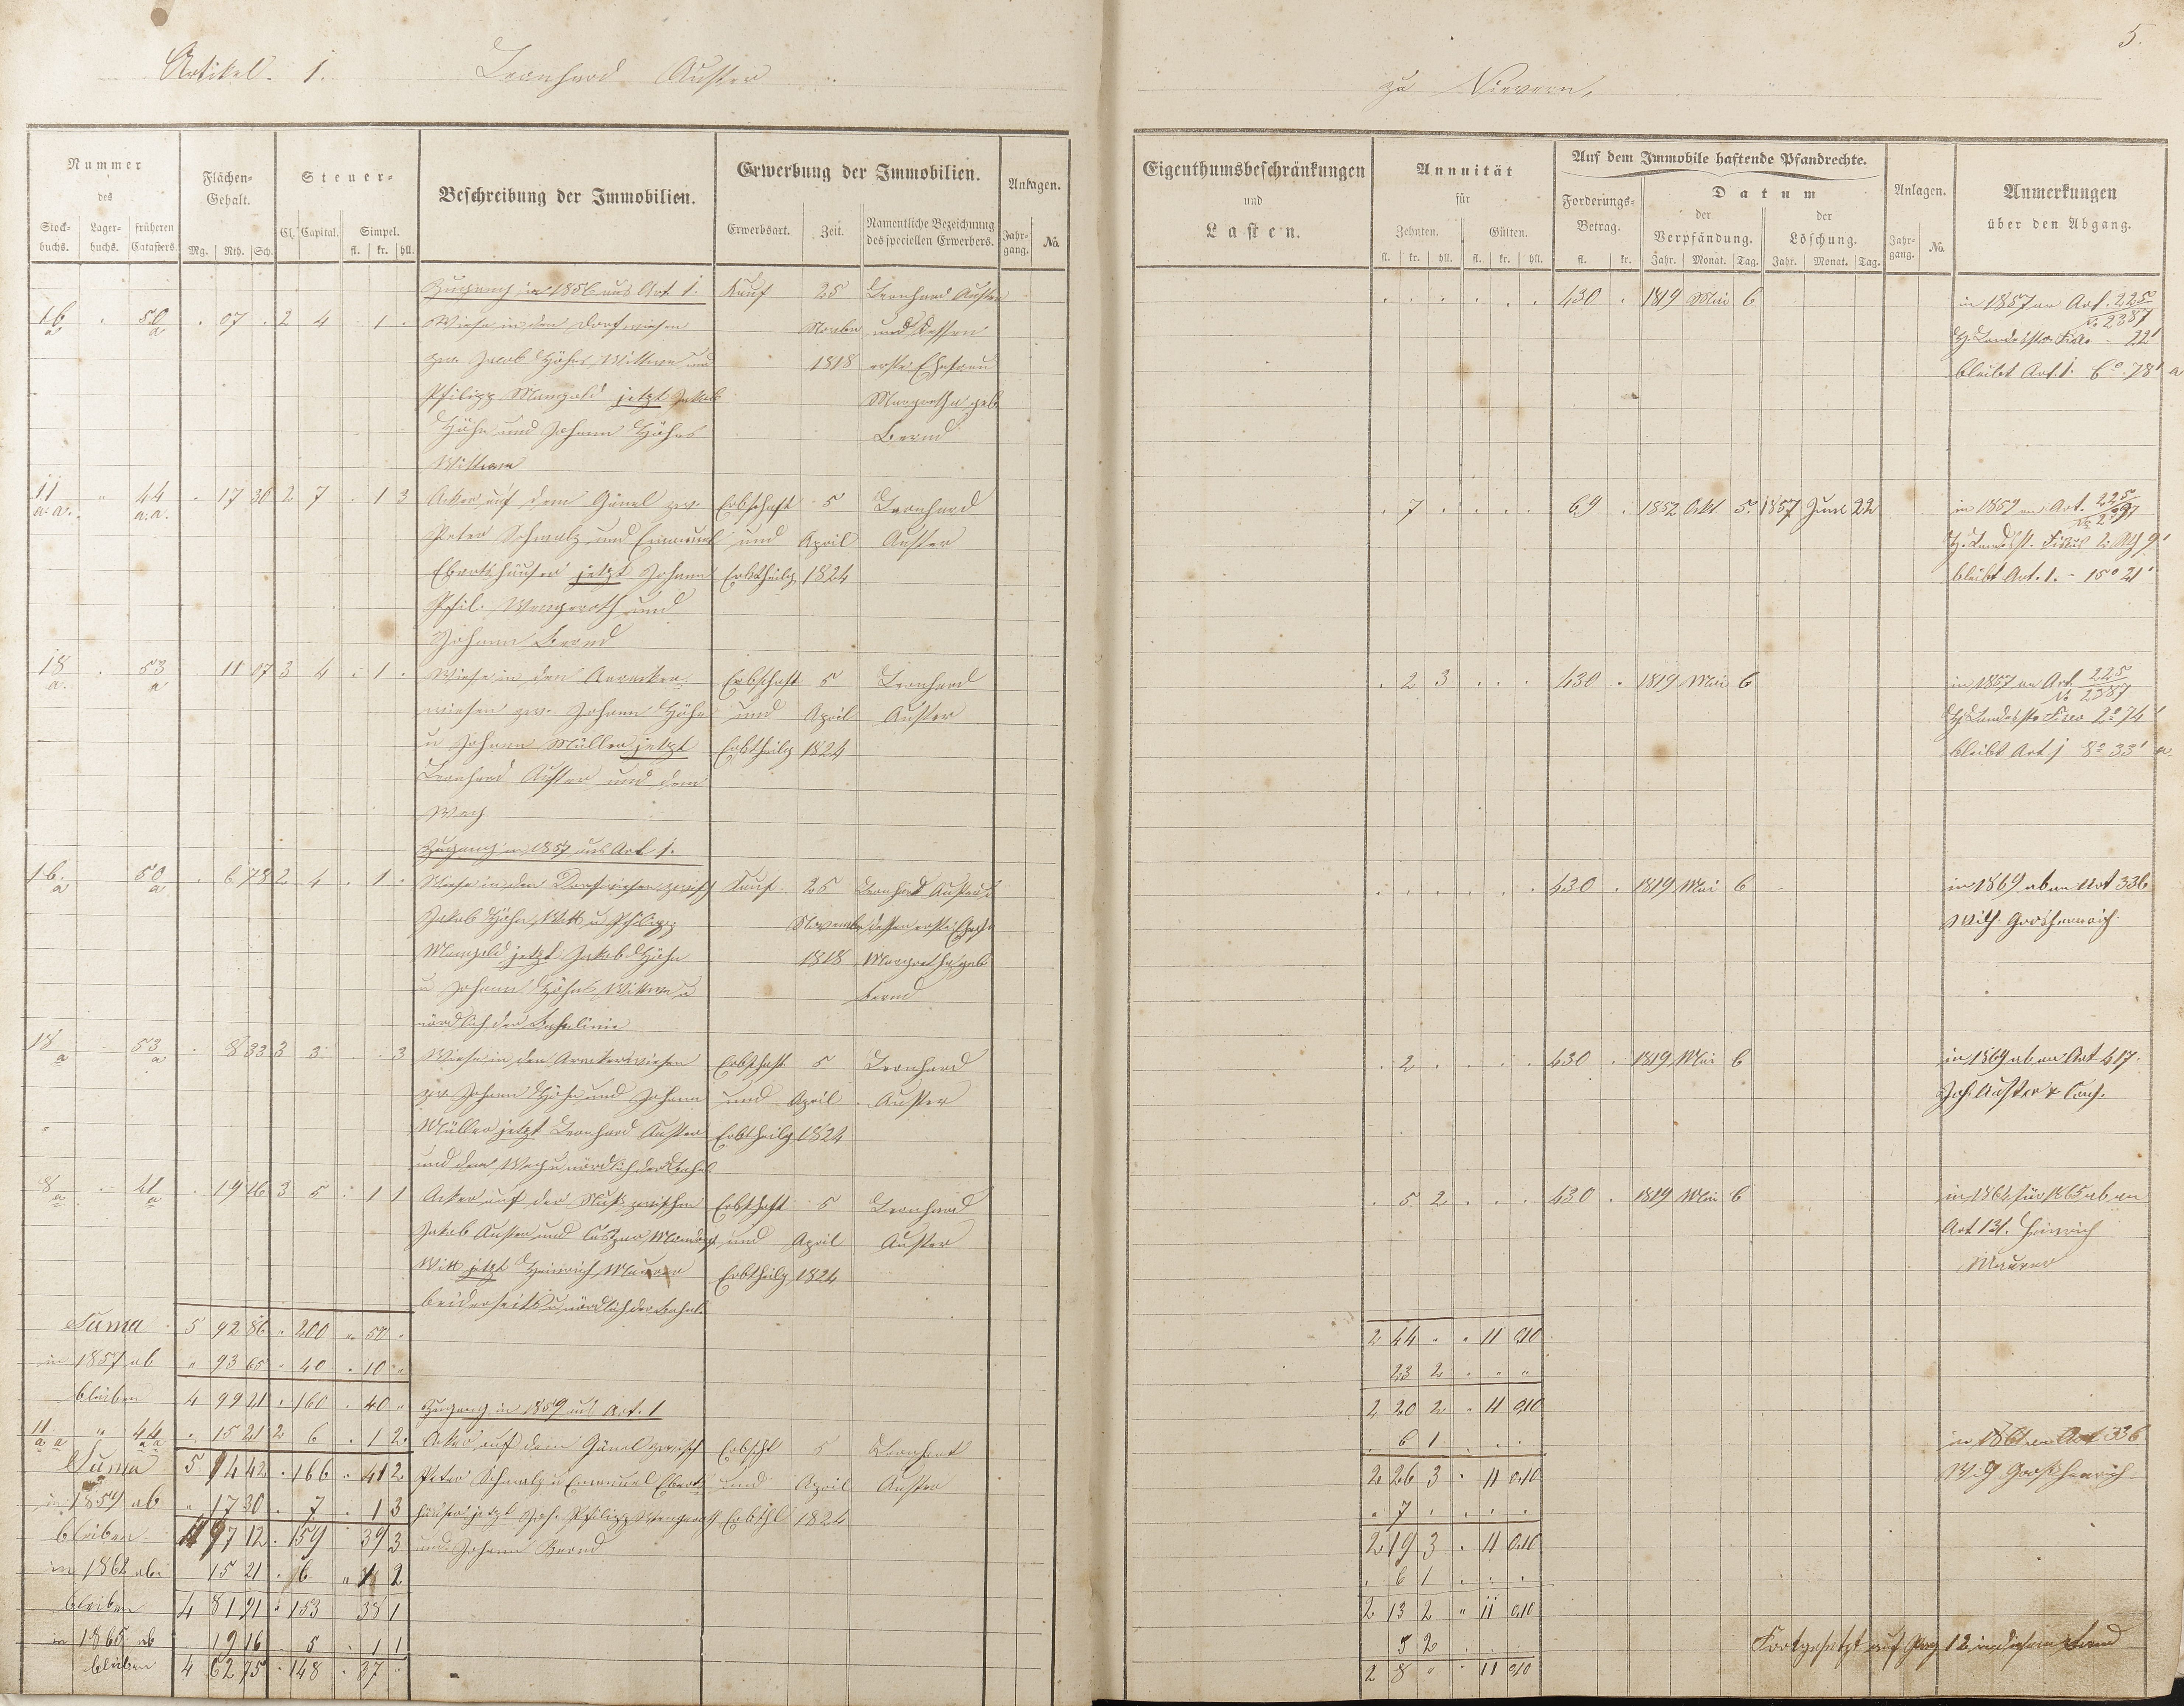 5.
Artikel. 1. Leonhard Auster
zu Nievern,
Nummer
des
Stock-buchs. Lager-buchs. früheren Catasters.
Flächen-Gehalt.
Mg. Rth. Sch.
Steuer-
Cl. Capital. Simpel.
fl. kr. hll.
Beschreibung der Immobilien.
Erwerbung der Immobilien.
Erwerbsart. Zeit. Namentliche Bezeichnung des speciellen Erwerbers.
Anlagen.
Jahr-gang. No.
Eigenthumsbeschränkungen
und
Lasten.
Annuität
für
Zehnten. Gülten.
fl. kr. hll. fl. kr. hll.
Auf dem Immobile haftende Pfandrechte.
Forderungs-Betrag.
fl. kr.
Datum
der Verpfändung. der Löschung.
Jahr. Monat. Tag. Jahr. Monat. Tag.
Anlagen.
Jahr-gang. No.
Anmerkungen
über den Abgang.
Zugang in 1856 aus Art 1. Kauf 25 Leonhard Auster 430 . 1819 Mai 6 in 1857 an Art. 225
16 a . 50 a . 07 . 2 4 . 1 . Wiese in den Dorfwiesen Novbr und dessen No 2387
zw. Jacob Höhns Wittwe und 1818 erste Ehefrau H. Landesstr. Fisco . 22'
Philipp Mangold jetzt Jakob Margaretha geb. bleibt Art. 1. 6° 78' a
Höhn und Johann Höhns Bernd
Wittwe
11 a.a. " 44 a.a. . 17 30 2 7 . 1 3 Acker auf dem Gänel zw. Erbschaft 5 Leonhard . 7 . . . . 69 . 1852 Okt 5. 1857 Juni 22 in 1859 an Art. 225
Peter Schmalz und Emanuel und April Auster
Ebertshäuser jetzt Johann Erbtheilg 1824 bleibt Art. 1. - 15° 21'
Phil. Wengeroth und
Johann Bernd
18 a. . 53 a . 11 07 3 4 . 1 . Wiese in den Aracker- Erbschaft 5 Leonhard . 2 3 . . . 430 . 1819 Mai 6 in 1857 an Art. 225
wiesen zw. Johann Höhn und April Auster No 2387
u Johann Müller jetzt Erbtheilg 1824 H. Landesstr. Fisco 2° 74'
Leonhard Auster und dem bleibt Art 1 8° 33' a.
Weg
Zugang in 1857 aus Art. 1.
16. a 50 a . 6 78 2 4 . 1 . Wiese in den Dorfwiesen zwisch Kauf 25 Leonhard Auster u . . . . . . 430 . 1819 Mai 6 in 1869 ab an Art 336
Jakob Höhn, Witt u Philipp Novembr dessen erste Ehefr. Wilh. Groshenrich
Mangold jetzt Jakob Höhn 1818 Margretha geb
u Johann Höhns Wittwe u Bernd
nördlich der Bahnlinie
18 a 53 a . 8 33 3 3 . . 3 Wiese in den Arackerswiesen Erbschaft 5 Leonhard . 2 . . . . 430 . 1819 Mai 6 in 1869 ab an Art 417.
zw. Johann Höhn und Johann und April Auster Joh. Auster & Cons.
Müller jetzt Leonhard Auster Erbtheilg 1824
und dem Weg u nördlich der Bahnl
8 a 41 a . 19 16 3 5 . 1 1 Acker auf der zwischen Erbschaft 5 Leonhard . 5 2 . . . 430 . 1819 Mai 6 in 1864 für 1865 ab an
Jakob Auster und und April Auster Art 131. Heinrich
Witt jetzt Heinrich Maurer Erbtheilg 1824 Maurer
beiderseits u nördlich der Bahnl.
Suma 5 92 86 " 200 " 50 . 2 44 " " 11 010
in 1857 ab " 93 65 " 40 . 10 " 23 2 " " "
bleiben 4 99 21 . 160 . 40 " Zugang in 1859 aus Art. 1 2 20 2 . 11 010
11 a a " 44 a a " 15 21 2 6 . 1 2. Acker auf dem Gänel zwisch Erbschft 5 Leonhart . 6 1 . . . in 1861 an Art 336
Suma 5 14 42 . 166 . 41 2 Peter Schmalz u Emanuel Eberts- und April Auster 2 26 3 . 11 010 Wilh Groshenrich
in 1859 ab " 17 30 . 7 . 1 3 häuser jetzt Joh. Philipp Wengeroth Erbthl 1824 . 7 . . . .
bleiben 4 97 12 . 159 39 3 und Johann Bernd 2 19 3 . 11 010
in 1862 ab. 15 21 . 6 " 1 2 . 6 1 . . .
bleiben 4 81 91 . 153 38 1 2 13 2 " 11 010
in 1865 ab . 19 16 . 5 . 1 1 5 2
bleiben 4 62 75 . 148 . 37 . 2 8 " . 11 010
Fortgesetzt auf pag 12 in diesem Band